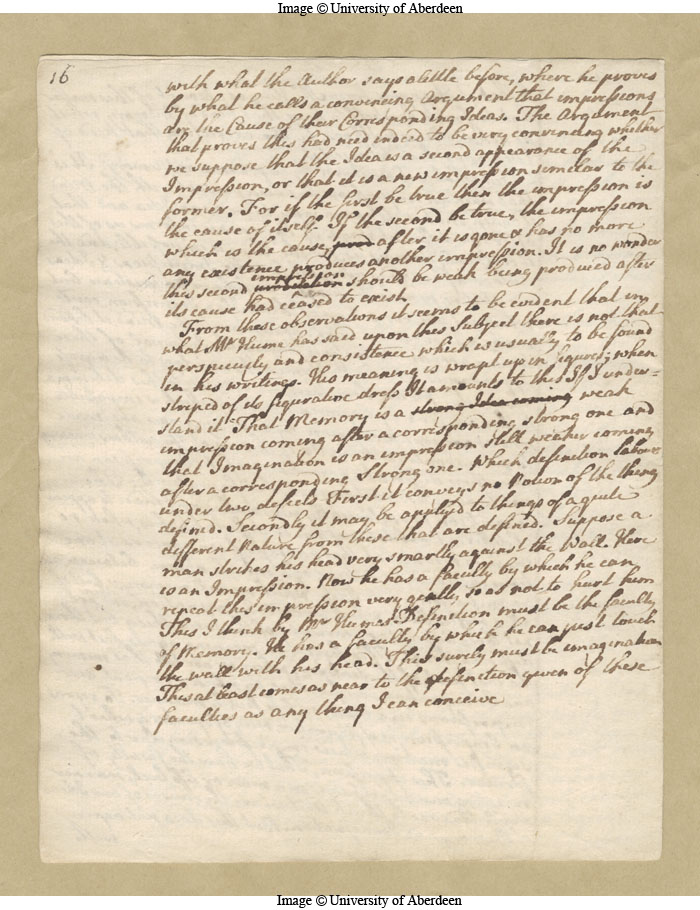 Image © University of Aberdeen
16
with what the Author says a little before, where he proves
by what he calls a convincing Argument that impressions
are the Cause of their Corresponding Ideas. The Argument
that proves this had need indeed to be very convincing whether
we suppose that the Idea is a second appearance of the
Impression, or that it is a new impression similar to the
former. For if the first be true then the impression is
the cause of itself. If the second be true, the impression
which is the cause, prod after it is gone & has no more
any existence produces another impression. It is no wonder
impression
this second production should be weak being produced after
its cause had ceased to exist.
From these observations it seems to be evident that in
what Mr Hume has said upon this Subject there is not that
perspicuity and consistence which is usually to be found
in his writings. His meaning is wrapt up in figures; when
striped of its figurative dress It amounts to this If I under=
stand it That Memory is a strong Idea coming weak
impression coming after a corresponding strong one and
that Imagination is an impression still weaker coming
after a corresponding Strong one. Which definition labours
under two defects First it conveys no Notion of the thing
defined. Secondly it may be applyd to things of a quite
different Nature from those that are defined. Suppose a
man strikes his head very smartly against the wall. Here
is an Impression. Now he has a faculty by which he can
repeat this impression very gently, so as not to hurt him
This I think by Mr Humes Definition must be the faculty
of Memory. He has a faculty by which he can just touch
the wall with his head. This surely must be imagination
This at least comes as near to the definition given of these
faculties as any thing I can conceive
Image © University of Aberdeen